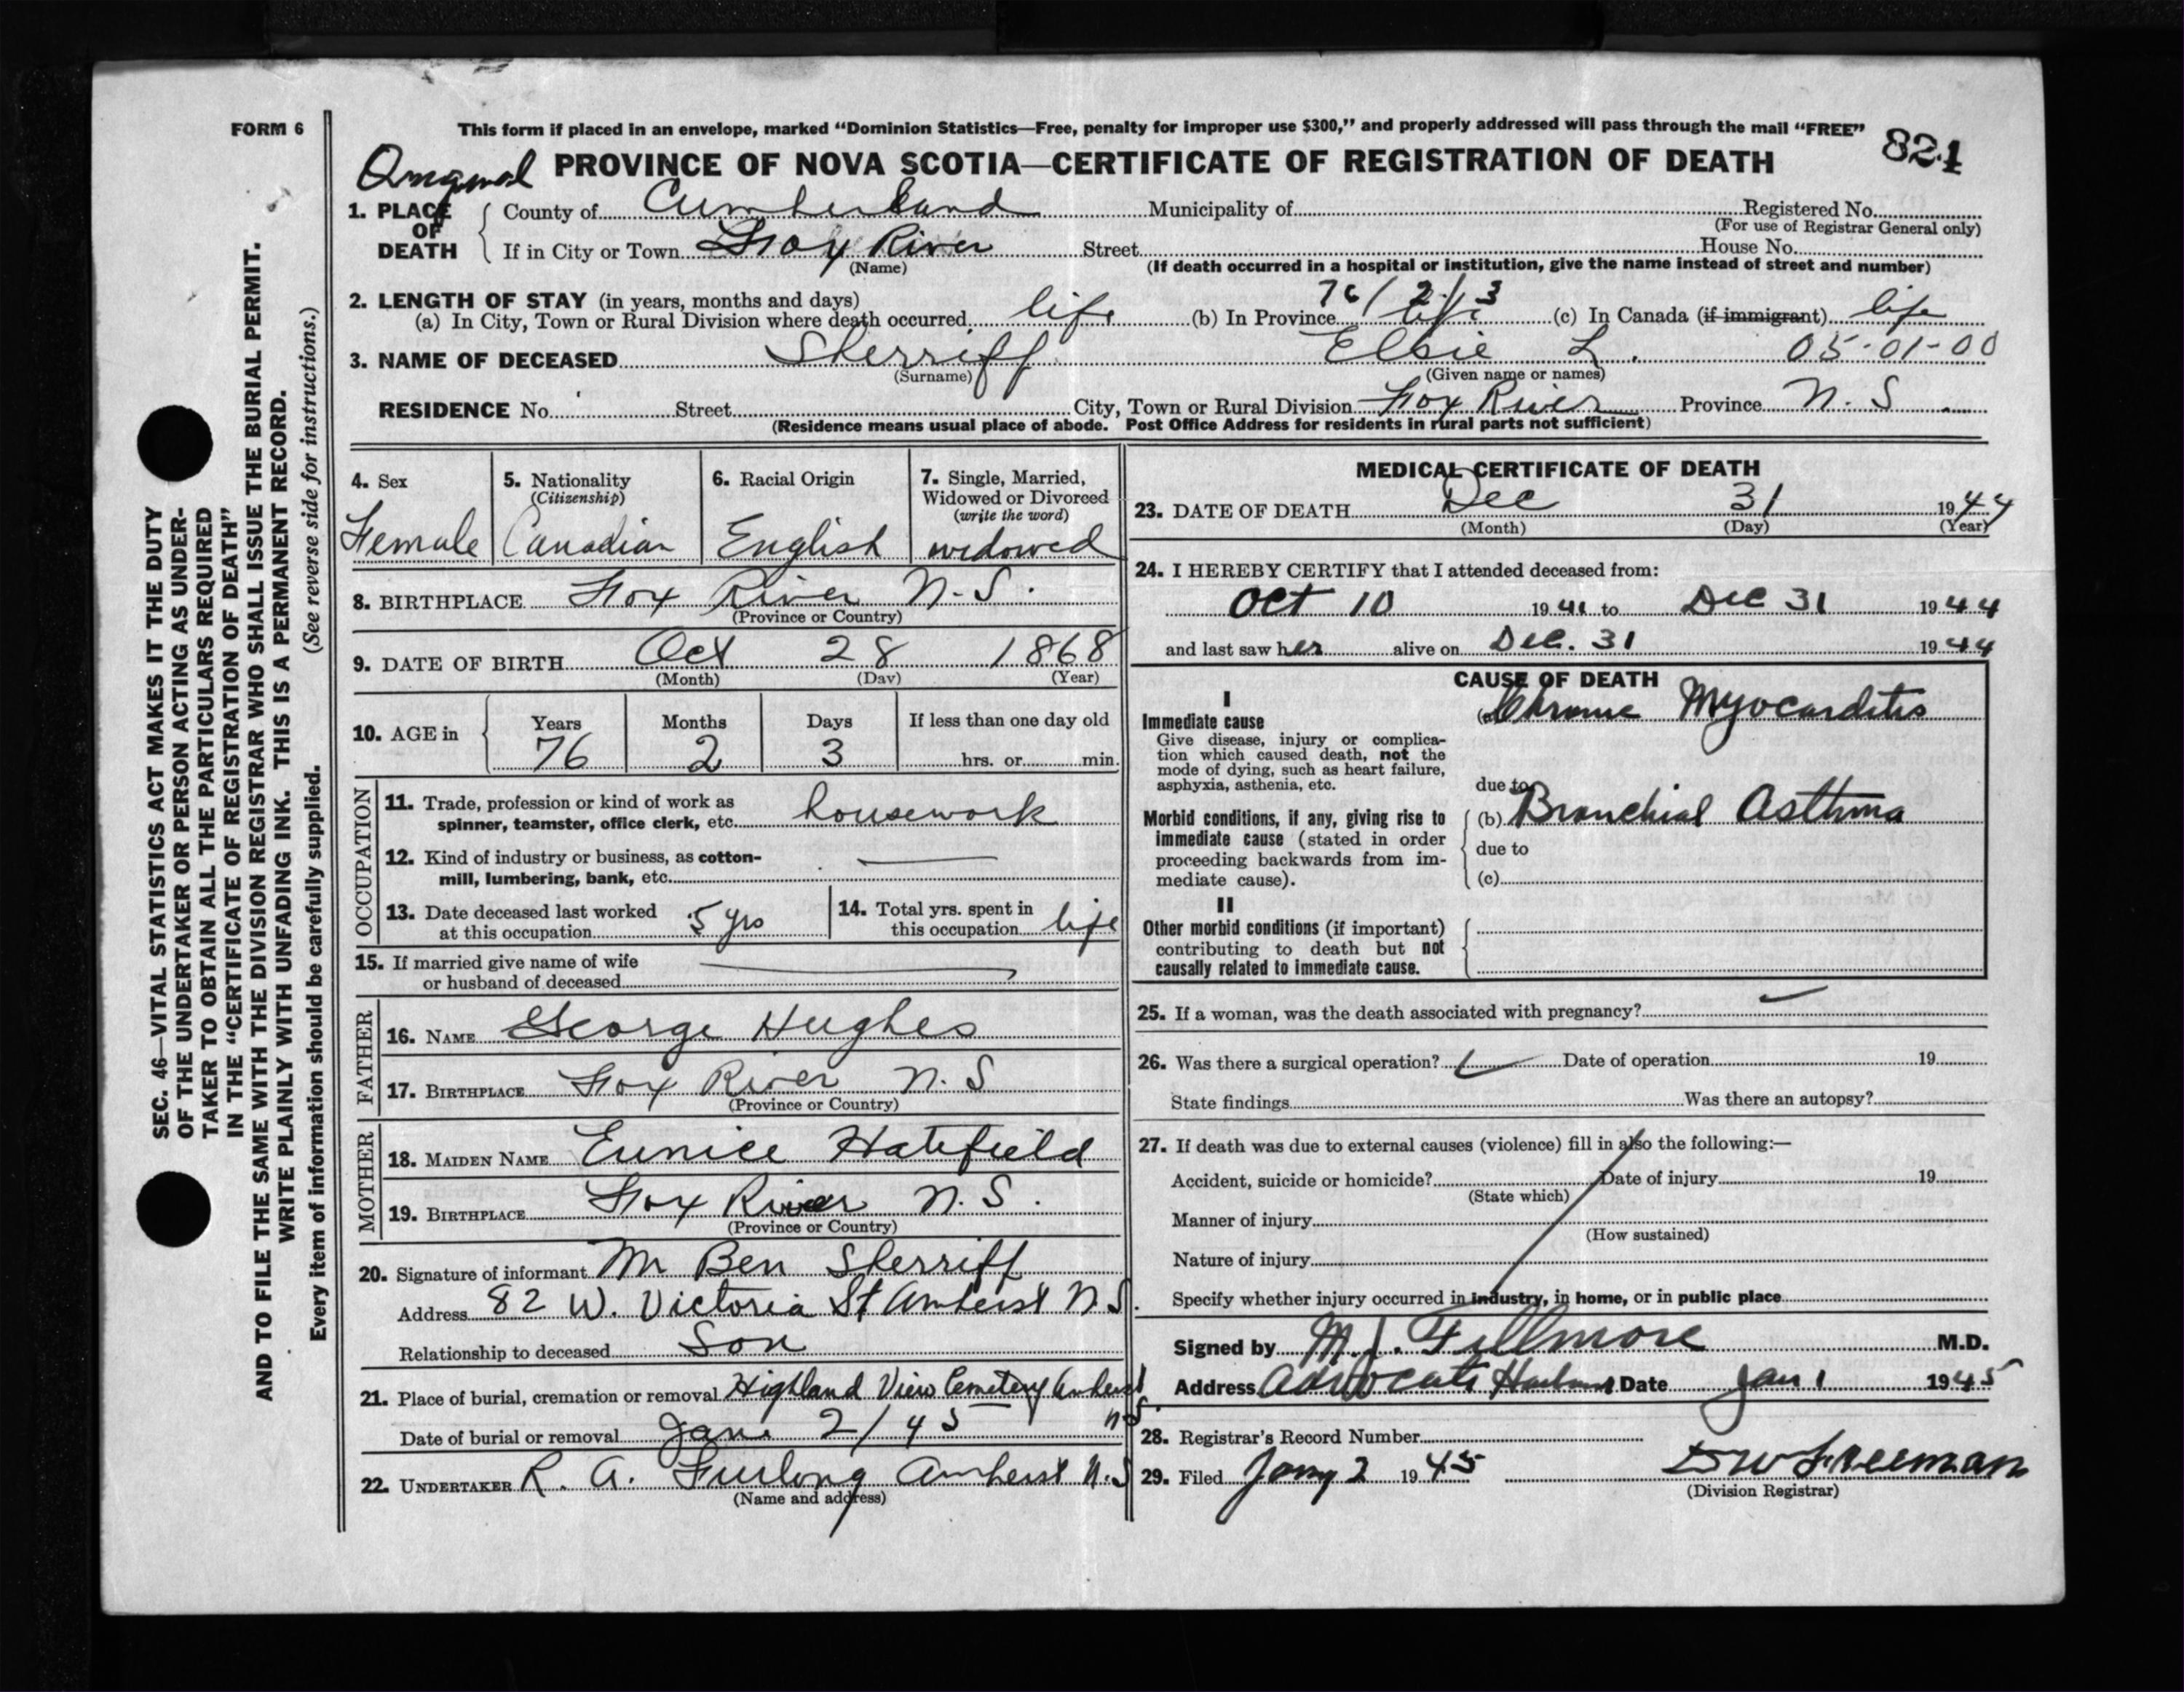 FORM 6
This form if placed in an envelope, marked “Dominion Statistics—Free, penalty for improper use $300,” and properly addressed will pass through the mail “FREE”
824
Original PROVINCE OF NOVA SCOTIA—CERTIFICATE OF REGISTRATION OF DEATH
1. PLACE OF DEATH County of Cumberland Municipality of Registered No.
(For use of Registrar General only)
If in City or Town Fox River Street House No.
(Name) (If death occurred in a hospital or institution, give the name instead of street and number)
2. LENGTH OF STAY (in years, months and days) 76/2/3
(a) In City, Town or Rural Division where death occurred life (b) In Province life (c) In Canada (if immigrant) life
3. NAME OF DECEASED Sherriff Elsie L. 05-01-00
(Surname) (Given name or names)
RESIDENCE No. Street City, Town or Rural Division Fox River Province N. S.
(Residence means usual place of abode. Post Office Address for residents in rural parts not sufficient)
4. Sex
Female
5. Nationality
(Citizenship)
Canadian
6. Racial Origin
English
7. Single, Married,
Widowed or Divorced
(write the word)
widowed
8. BIRTHPLACE Fox River N.S.
(Province or Country)
9. DATE OF BIRTH Oct 28 1868
(Month) (Day) (Year)
10. AGE in Years Months Days If less than one day old
76 2 3 hrs. or min.
OCCUPATION
11. Trade, profession or kind of work as
spinner, teamster, office clerk, etc. housework
12. Kind of industry or business, as cotton-
mill, lumbering, bank, etc. —
13. Date deceased last worked
at this occupation 5 yrs
14. Total yrs. spent in
this occupation life
15. If married give name of wife
or husband of deceased —
FATHER
16. NAME George Hughes
17. BIRTHPLACE Fox River N. S
(Province or Country)
MOTHER
18. MAIDEN NAME Eunice Hatfield
19. BIRTHPLACE Fox River N. S.
(Province or Country)
20. Signature of informant Mr Ben Sherriff
Address 82 W. Victoria St Amherst N S.
Relationship to deceased Son
21. Place of burial, cremation or removal Highland View Cemetery Amherst
N.S.
Date of burial or removal Jan. 2/45
22. UNDERTAKER R. A. Furlong Amherst N.S
(Name and address)
MEDICAL CERTIFICATE OF DEATH
23. DATE OF DEATH Dec 31 1944
(Month) (Day) (Year)
24. I HEREBY CERTIFY that I attended deceased from:
Oct 10 19 to Dec 31 1944
and last saw her alive on Dec. 31 1944
CAUSE OF DEATH
I
Immediate cause
Give disease, injury or complica-
tion which caused death, not the
mode of dying, such as heart failure,
asphyxia, asthenia, etc.
(a) Chronic Myocarditis
due to
Morbid conditions, if any, giving rise to
immediate cause (stated in order
proceeding backwards from im-
mediate cause).
(b) Bronchial Asthma
due to
(c)
II
Other morbid conditions (if important)
contributing to death but not
causally related to immediate cause.
25. If a woman, was the death associated with pregnancy?
26. Was there a surgical operation? Date of operation 19
State findings Was there an autopsy?
27. If death was due to external causes (violence) fill in also the following:—
Accident, suicide or homicide? Date of injury 19
(State which)
Manner of injury
(How sustained)
Nature of injury
Specify whether injury occurred in industry, in home, or in public place
Signed by M. J. Fillmore M.D.
Address Advocate Harbour Date Jan 1 1945
28. Registrar's Record Number
29. Filed Jany 2 1945 Freeman
(Division Registrar)
SEC. 46—VITAL STATISTICS ACT MAKES IT THE DUTY
OF THE UNDERTAKER OR PERSON ACTING AS UNDER-
TAKER TO OBTAIN ALL THE PARTICULARS REQUIRED
IN THE “CERTIFICATE OF REGISTRATION OF DEATH”
AND TO FILE THE SAME WITH THE DIVISION REGISTRAR WHO SHALL ISSUE THE BURIAL PERMIT.
WRITE PLAINLY WITH UNFADING INK. THIS IS A PERMANENT RECORD.
Every item of information should be carefully supplied. (See reverse side for instructions.)